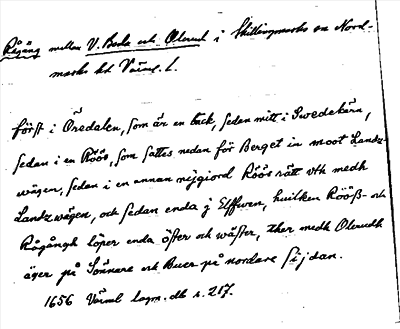 Rågång mellan V. Boda och Olerud i Skillingmarks sn Nord-
marks hd Värml. l.
först i Öredalen, som är en beck, sedan mitt i Swedekärn,
sedan i en Röös, som sattes nedan för Berget in moot Landz-
wägen, sedan i en annan nijgiord Röös rätt vth medh
Landzwägen, och sedan enda j Elffwen, huilken Rööß- och
Rågångh löper enda öster och wäster, ther medh Olerudh
äger på Sönnare och Boer på nordare sijdan.
1656 Värml lagm. db s. 217.